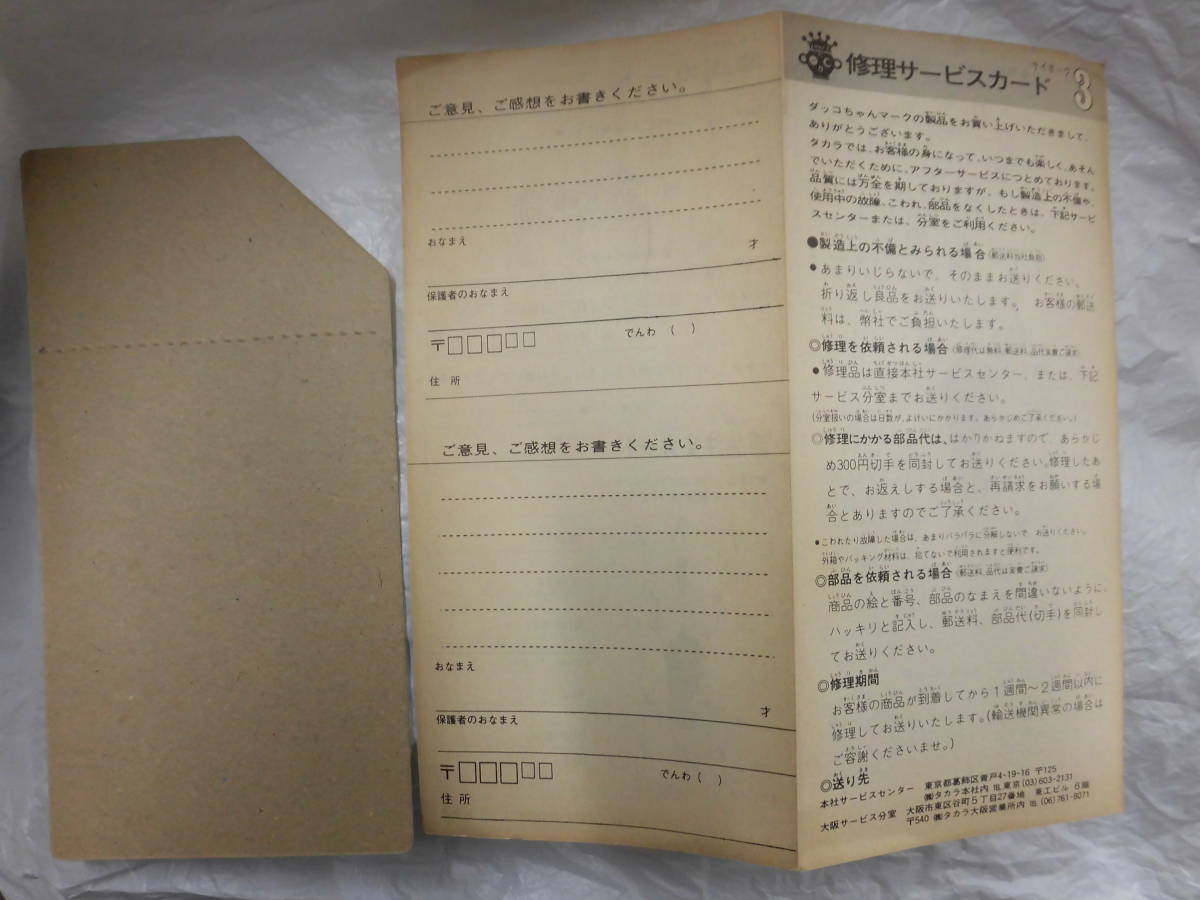 ご意見、ご感想をお書きください。
おなまえ
才
保護者のおなまえ
〒
でんわ ( )
住所
ご意見、ご感想をお書きください。
おなまえ
才
保護者のおなまえ
〒
でんわ ( )
住所
修理サービスカード
3
ダッコちゃんマークの製品をお買い上げいただきまして、
ありがとうございます。
タカラでは、お客様の身になって、いつまでも楽しく、あそん
でいただくために、アフターサービスにつとめております。
品質には万全を期しておりますが、もし製造上の不備や、
使用中の故障、こわれ、部品をなくしたときは、下記サービ
スセンターまたは、分室をご利用ください。
●製造上の不備とみられる場合(郵送料当社負担)
●あまりいじらないで、そのままお送りください。
折り返し良品をお送りいたします。 お客様の郵送
料は、幣社でご負担いたします。
◎修理を依頼される場合(修理代は無料、郵送料、品代実費ご請求)
●修理品は直接本社サービスセンター、または、下記
サービス分室までお送りください。
(分室扱いの場合は日数が、よけいにかかります。あらかじめご了承ください。)
◎修理にかかる部品代は、はかりかねますので、あらかじ
め300円切手を同封してお送りください。修理したあ
とで、お返えしする場合と、再請求をお願いする場
合とありますのでご了承ください。
●こわれたり故障した場合は、あまりバラバラに分解しないで お送りください。
外箱やパッキング材料は、捨てないで利用されますと便利です。
◎部品を依頼される場合(郵送料、品代は実費ご請求)
商品の絵と番号、部品のなまえを間違いないように、
ハッキリと記入し、郵送料、部品代(切手)を同封し
てお送りください。
◎修理期間
お客様の商品が到着してから1週間〜2週間以内に
修理してお送りいたします。(輸送機関異常の場合は
ご容謝くださいませ。)
◎送り先
本社サービスセンター 東京都葛飾区青戸4-19-16 〒125
㈱タカラ本社内 ℡東京(03)603-2131
大阪サービス分室 大阪市東区谷町5丁目27番地 東工ビル 6階
〒540 ㈱タカラ大阪営業所内 ℡(06)761-8071